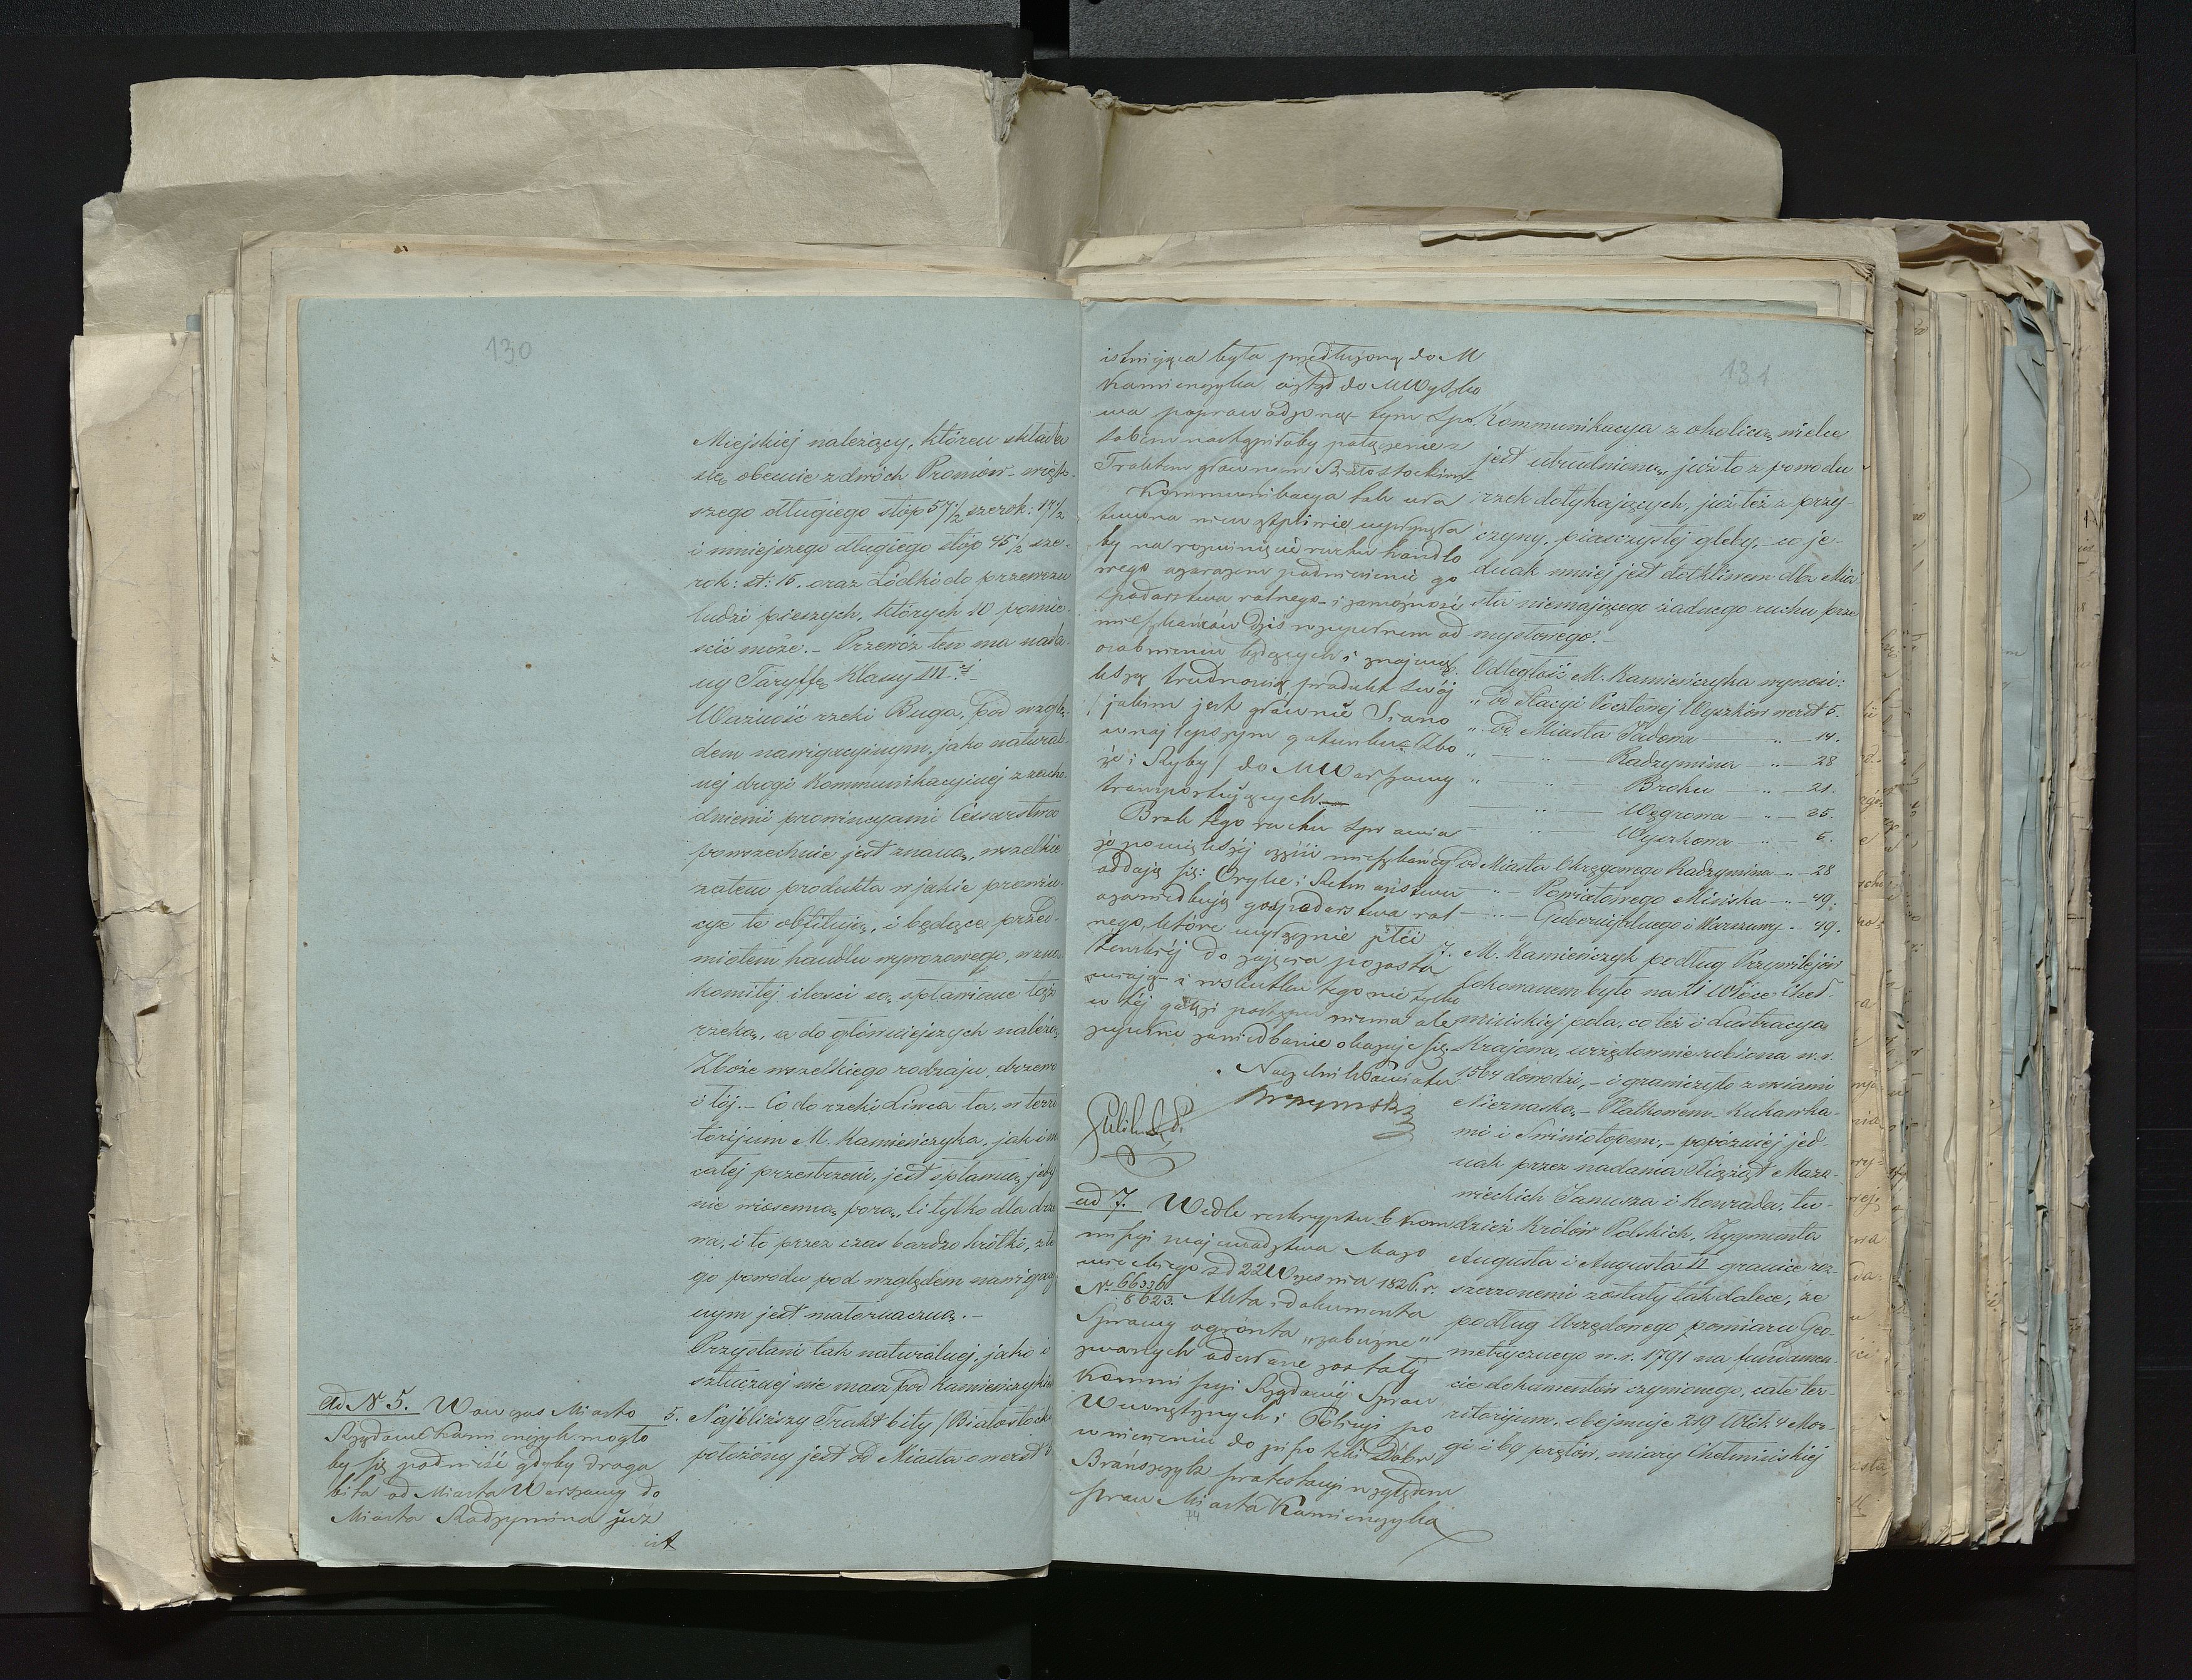 130
Miejskiéj należący, któren składa
się obecnie z dwóch Promów - więk-
szego długiego stóp 57½ szerok: 17½
i mniejszego długiego stóp 45½ sze-
rok: st: 15. oraz Łódki do przewozu
ludzi pieszych, których 10 pomie-
ścić może. - Przewóz ten ma nada-
ny Taryffę Klassy III.éj
Ważność rzeki Buga, pod wzglę-
dem nawigacyjnym, jako natural-
nej drogi Kommunikacyjnej z zacho-
dniemi prowincyami Cesarstwa
powszechnie jest znaną, wszelkie
zatem produkta w jakie prowin-
cye te obfitują, i będące przed-
miotem handlu wywozowego, w zna-
komitej ilości są spławiane tąż
rzeką, a do główniejszych należą
Zboże wszelkiego rodzaju, drzewo
i łój. - Co do rzeki Liwca ta, w terri-
torijum M. Kamieńczyka, jak i w
całej przestrzeni, jest spławną jedy
nie wiosenną porą, li tylko dla drze
wa, i to przez czas bardzo krótki, z te
go powodu pod względem nawigacy
nym jest małoznaczną. -
Przystani tak naturalnej, jako i
sztucznej nie masz pod Kamieńczykiem
5. Najbliższy Trakt bity /Białostocki
położony jest od Miasta o werst 6
Ad N 5. Wówczas Miasto
Rządowe Kamieńczyk mogło
by się podnieść gdyby droga
bita od Miasta Warszawy do
Miasta Radzymina już
ist
131
istniejąca była przedłużoną do M
Kamieńczyka a ztąd do M Wyszko
wa poprowadzoną - tym spo-
sobem nastąpiłoby połączenie z
Traktem głównym Białostockim
Kommunikacya tak ura
by na rozwinięcie ruchu handlo
wego a zarazem podniesienie go
spodarstwa rolnego - i zamożności
mieszkańców dziś w zupełnem od
osobnieniu będących i z najwię-
kszą trudnością, produkt swój
/ jakim jest głównie Siano
w najlepszym gatunku Zbo
że i Ryby / do M Warszawy
transportujących. -
Brak tego ruchu sprawia
że po większej części mieszkańcy
oddają się: Oryce i Retmaństwu
a zaniedbują gospodarstwa rol
nego, które wyłącznie płci
żeńskiéj do zajęcia pozosta
wiają - i w skutku tego nie tylko
w tej gałęzi postępu niema ale
zupełne zaniedbanie okazuje się
Naczelnik Powiatu
ad 7. Wedle reskryptu b. Kom
missyi Województwa Mazo
wieckiego z d 22 Września 1826. r.
N. 66336/8623. Akta i dokumenta
Sprawy o grónta "zabużne"
zwanych odesłane zostały
Kommissyi Rządowéj Spraw
Wewnętrznych i Policyi po
wniesieniu do ksiąg Dóbr
Brańszczyk protestacyi względem
praw Miasta Kamieńczyka
74
Kommunikacya z okolicą wielce
jest utrudnioną, już to z powodu
rzek dotykających, już też z przy-
czyny, piasczystej gleby, - co je-
dnak mniej jest dotkliwem dla Mia
sta niemającego żadnego ruchu prze
mysłowego. -
Odległość M. Kamieńczyka wynosi:
" Od Stacyi Pocztowej Wyszków werst 5.
" Od Miasta Jadowa " 14.
" " Radzymina — " — 28
" " Broku — " — 21.
" " Węgrowa — " — 35.
" " Wyszkowa — " — 5.
Od Miasta Okręgowego Radzymina — " — 28
" Powiatowego Mińska — " — 49.
" Gubernijalnego i Warszawy - " 49.
7. M. Kamieńczyk podług Przywilejów
lokowanem było na 21 Włóce Cheł-
mińskiej pola, co też i Lustracya
Krajowa, urzędownie robiona w. r.
1564 dowodzi, - i graniczyło z wsiami
Nieznaską, - Płatkowem - Kukawka-
mi i Swiniotopem, - popóźniej jed-
nak przez nadania Xiążąt Mazo-
wieckich Janusza i Konrada, tu-
dzież Królów Polskich, Zygmunta
Augusta i Augusta II granice roz-
szerzonemi zostały tak dalece, że
podług Urzędowego pomiaru Geo-
metrycznego w. r. 1791 na fundamen-
cie dokumentów czynionego, całe ter-
ritorijum, obejmuje 219 Włók 4 Mor-
gi i 69 prętów, miary Chełmińskiej